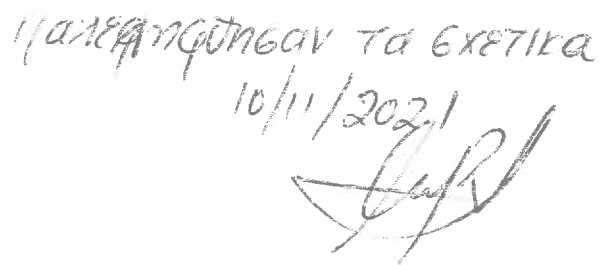 Παρελήφθησαν τα σχετικα
10/11/2021